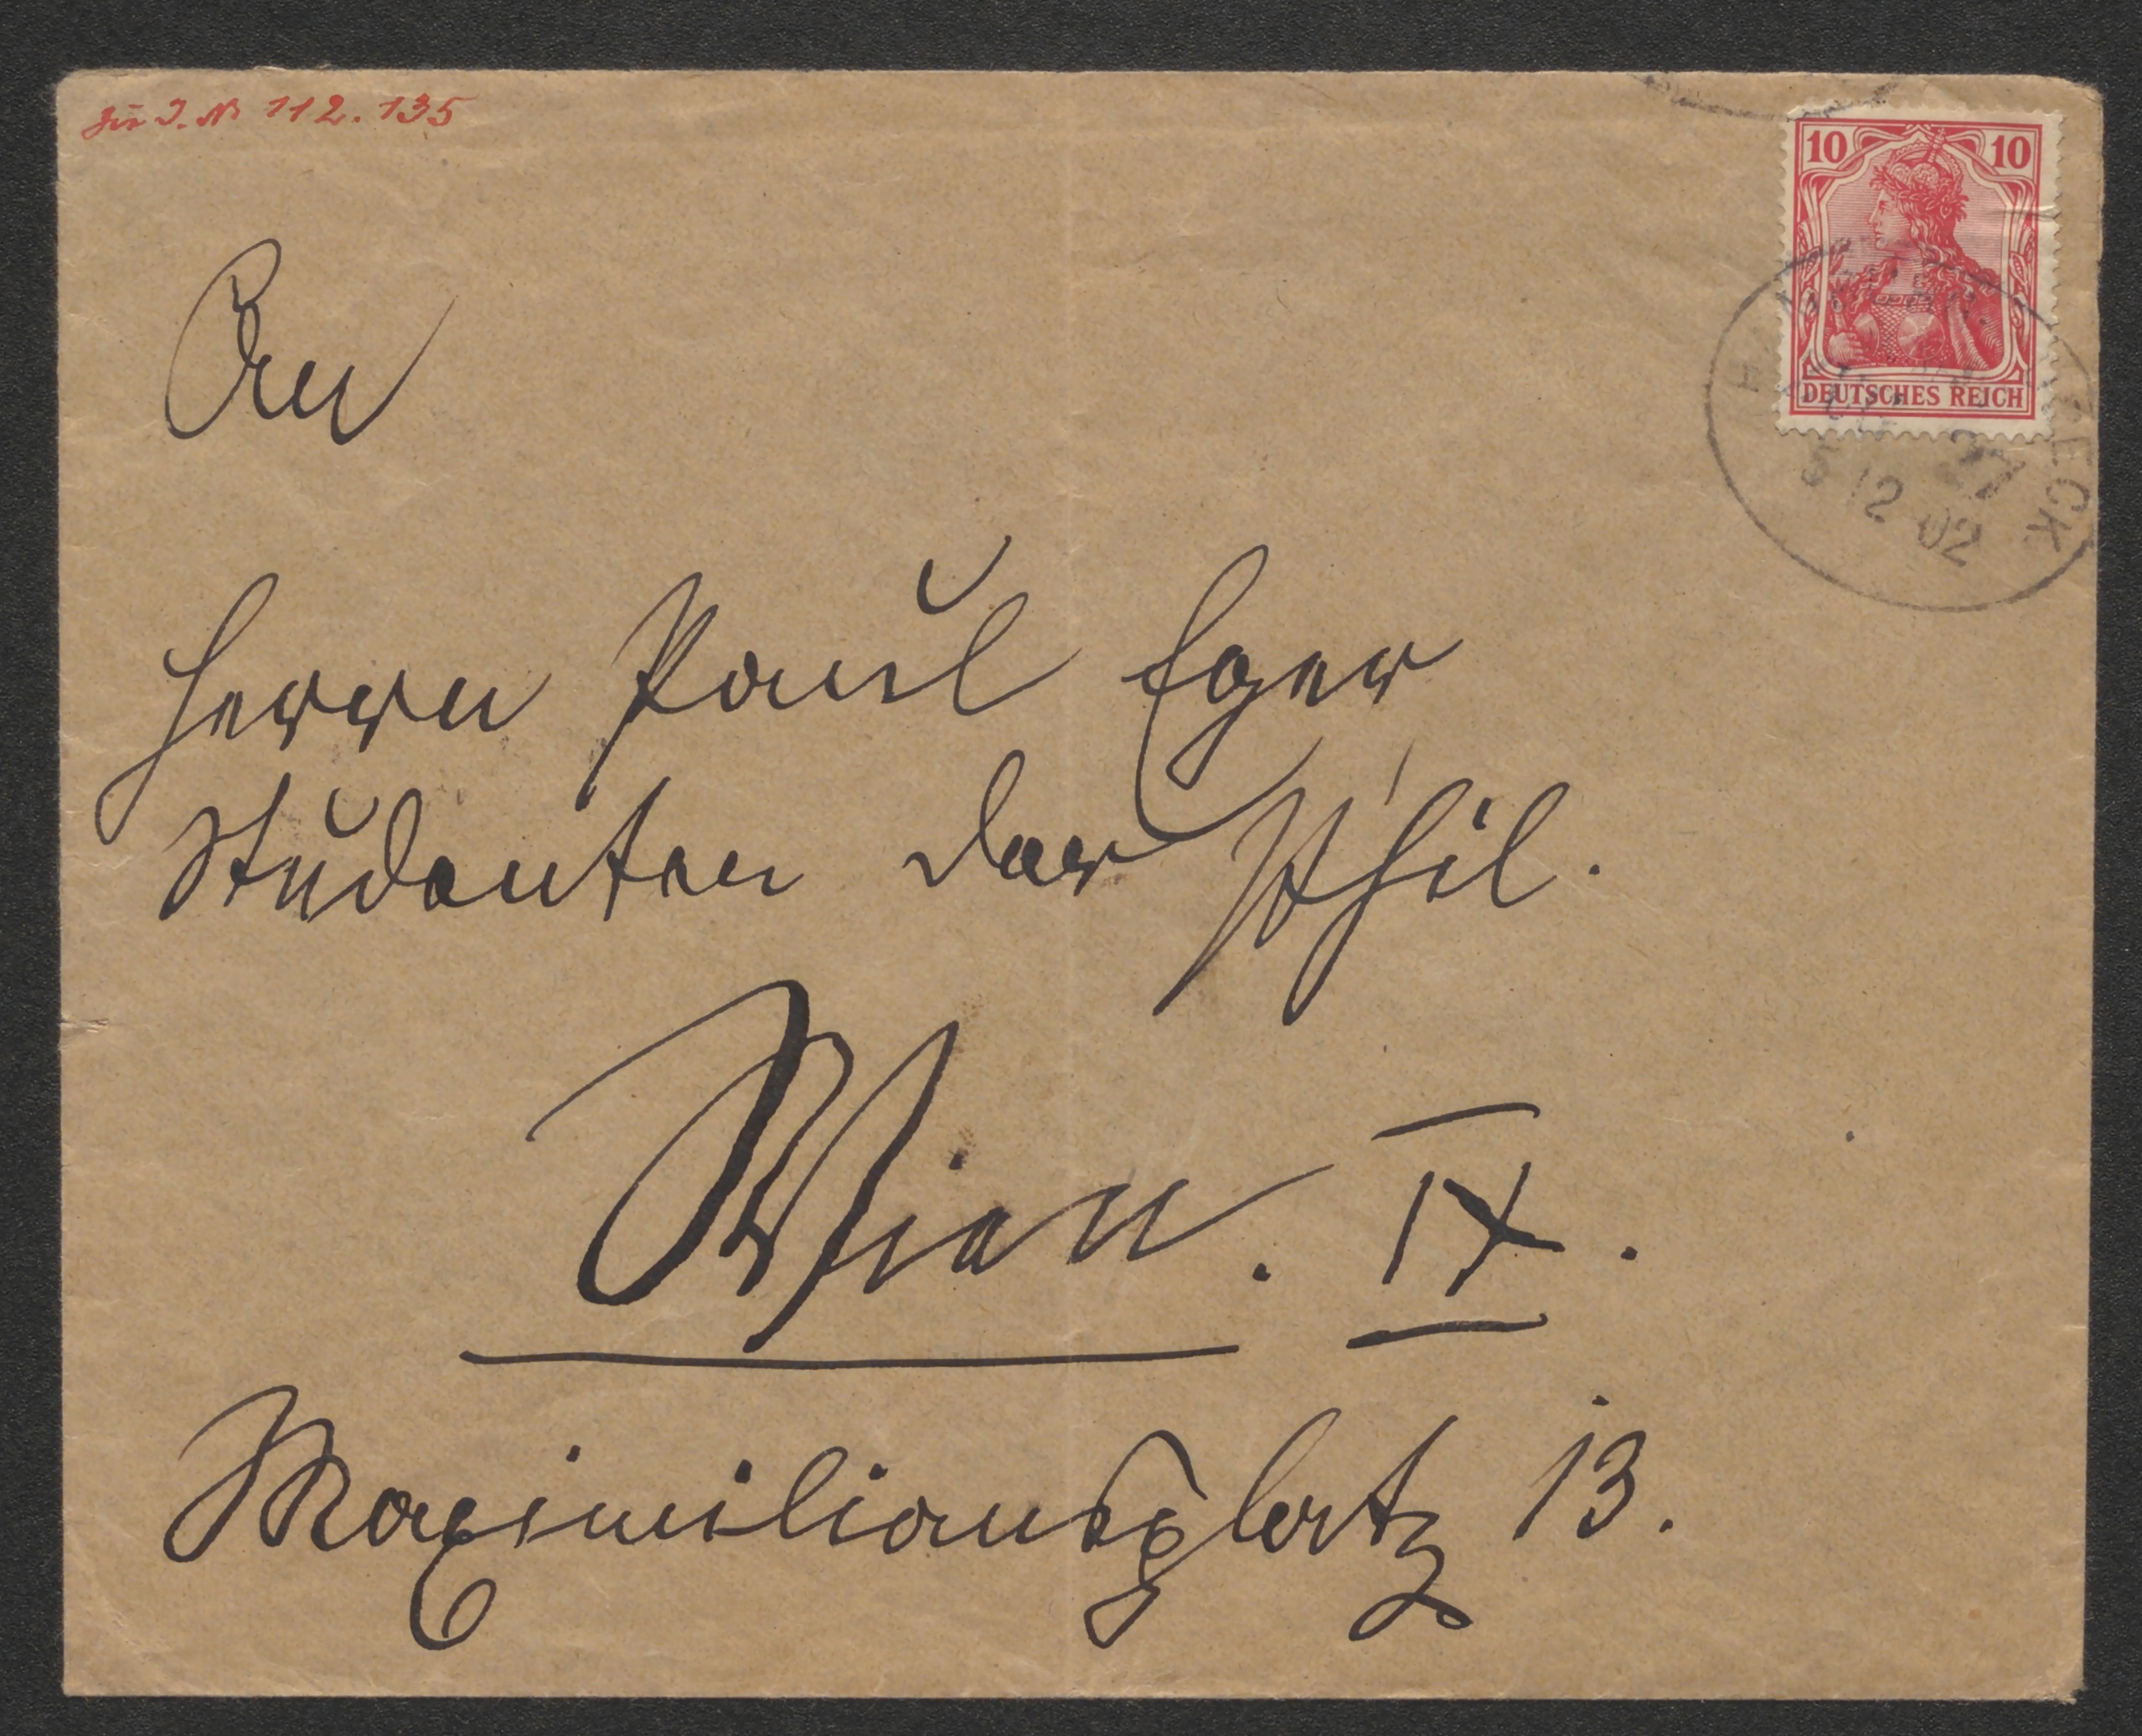 zu I. N. 112.135
10 10
DEUTSCHES REICH
27
5 12 02
An
Herrn Paul Eger
Studenten der Phil.
Wien. IX.
Maximiliansplatz 13.